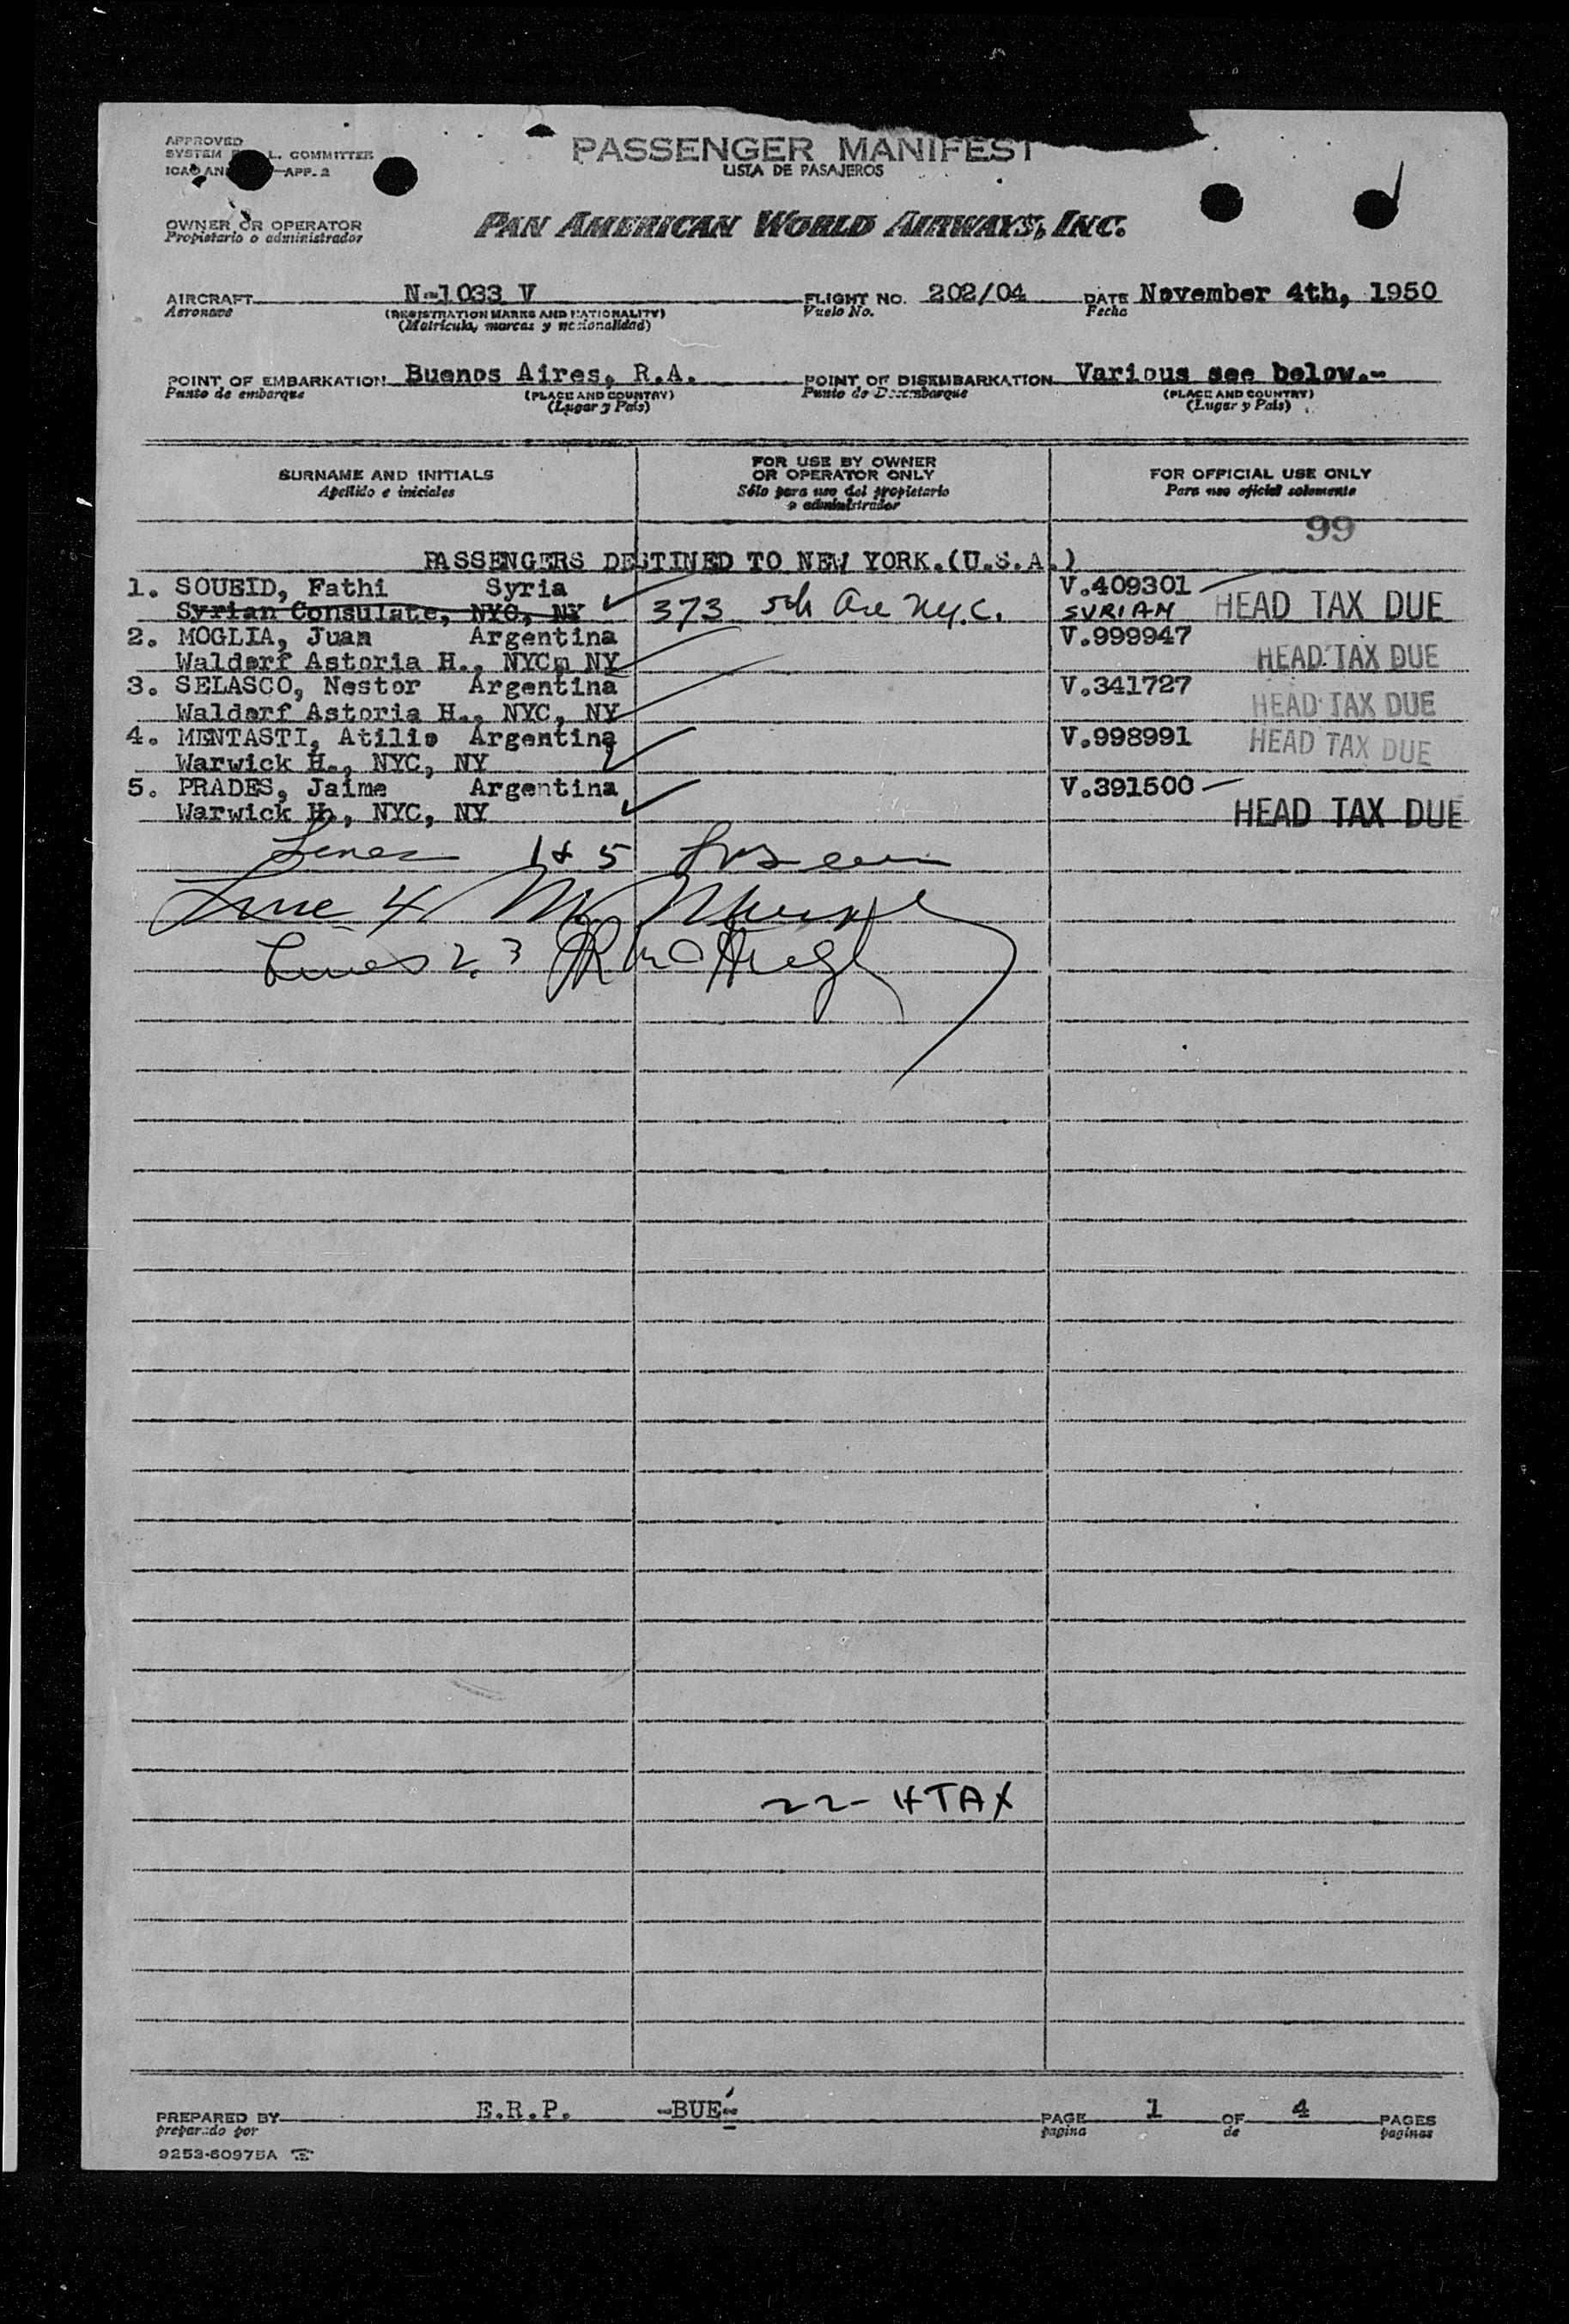 APPROVED
SYSTEM L. COMMITTEE
ICAO AN APP. 2
PASSENGER MANIFEST
LISTA DE PASAJEROS
OWNER OR OPERATOR
Propietario o administrador
PAN AMERICAN WORLD AIRWAYS, INC.
AIRCRAFT N-1033 V FLIGHT NO. 202/04 DATE November 4th, 1950
Aeronave (REGISTRATION MARKS AND NATIONALITY) Vuelo No. Fecha
(Matrícula, marcas y nacionalidad)
POINT OF EMBARKATION Buenos Aires, R.A. POINT OF DISEMBARKATION Various see below.-
Punto de embarque (PLACE AND COUNTRY) Punto de Desembarque (PLACE AND COUNTRY)
(Lugar y País) (Lugar y País)
SURNAME AND INITIALS
Apellido e iniciales
FOR USE BY OWNER
OR OPERATOR ONLY
Sólo para uso del propietario
o administrador
FOR OFFICIAL USE ONLY
Para uso oficial solamente
99
PASSENGERS DESTINED TO NEW YORK.(U.S.A.)
1. SOUEID, Fathi Syria V.409301
Syrian Consulate, NYC, NY 373 5th Ave N.Y.C. SYRIAN HEAD TAX DUE
2. MOGLIA, Juan Argentina V.999947
Waldorf Astoria H., NYCm NY HEAD TAX DUE
3. SELASCO, Nestor Argentina V.341727
Waldorf Astoria H., NYC, NY HEAD TAX DUE
4. MENTASTI, Atilio Argentina V.998991 HEAD TAX DUE
Warwick H., NYC, NY
5. PRADES, Jaime Argentina V.391500
Warwick H., NYC, NY HEAD TAX DUE
Lines 1 & 5
Line 4
Lines 2, 3
22- HTAX
PREPARED BY E.R.P. -BUE- PAGE 1 OF 4 PAGES
preparado por pagina de paginas
9253-60975A